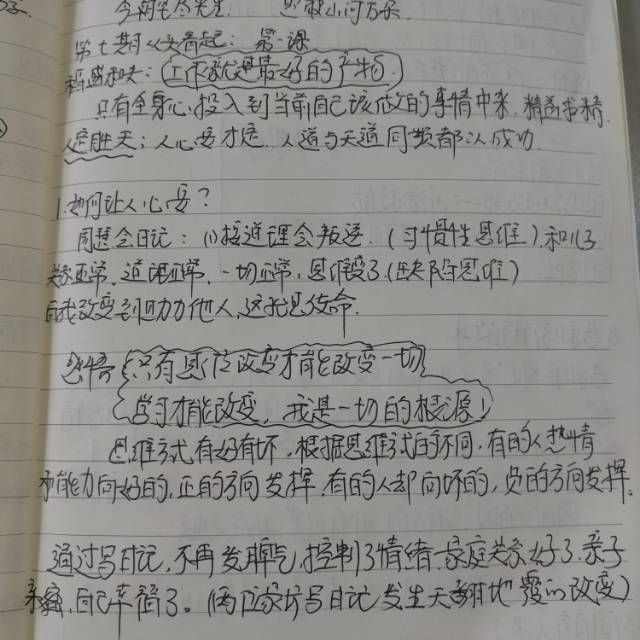 第七期《父母起：第一课
稻盛和夫：工作就是最好的产物.
只有全身心投入到当前自己该做的事情中来，精进书精.
人定胜天；人心要才定. 人道与天道同频都以成功.
1.如何让人心安？
周慧会日记：(1)接近理念叛逆.(习惯性思维).和儿子
关系正常，道理正常，一切正常，思维变了(缺陷思维)
自我改变到助力他人，这就是使命.
感悟 只有思维改变才能改变一切
学习才能改变，我是一切的根源！
思维方式有好有坏，根据思维方式的不同，有的人热情
和能力向好的，正的方向发挥，有的人却向坏的，负的方向发挥.
通过写日记，不再发脾气，控制了情绪，家庭关系好了，亲子
亲密，自己幸福了。(两位家长写日记发生天翻地覆的改变)